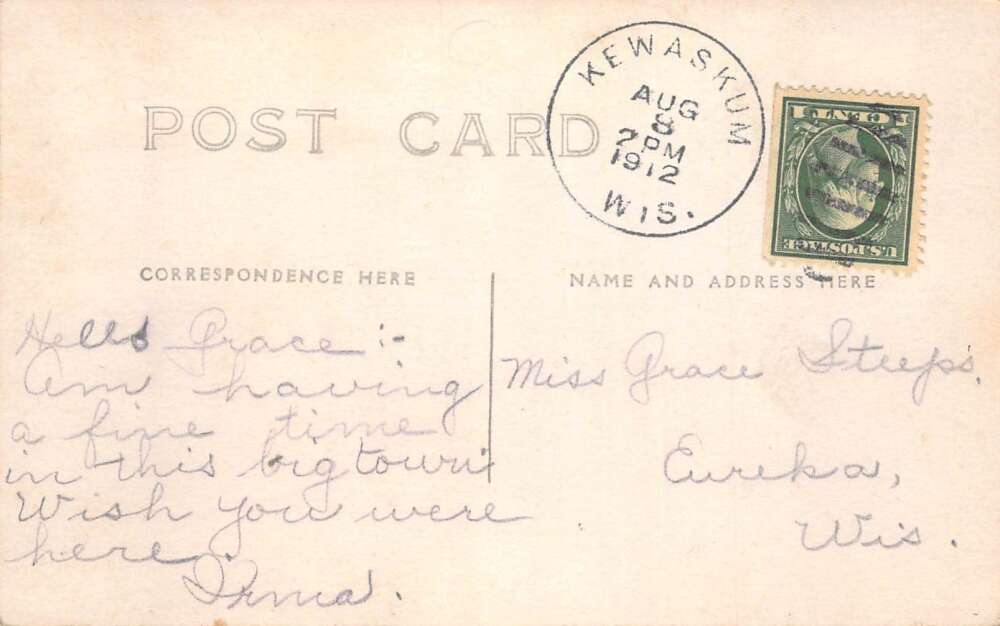 POST CARD
KEWASKUM
AUG
8
2 PM
1912
WIS.
1 CENT 1
U.S. POSTAGE
CORRESPONDENCE HERE
NAME AND ADDRESS HERE
Hello Grace :-
Am having
a fine time
in this big town
Wish you were
here.
Irma.
Miss Grace Steeps.
Eureka,
Wis.